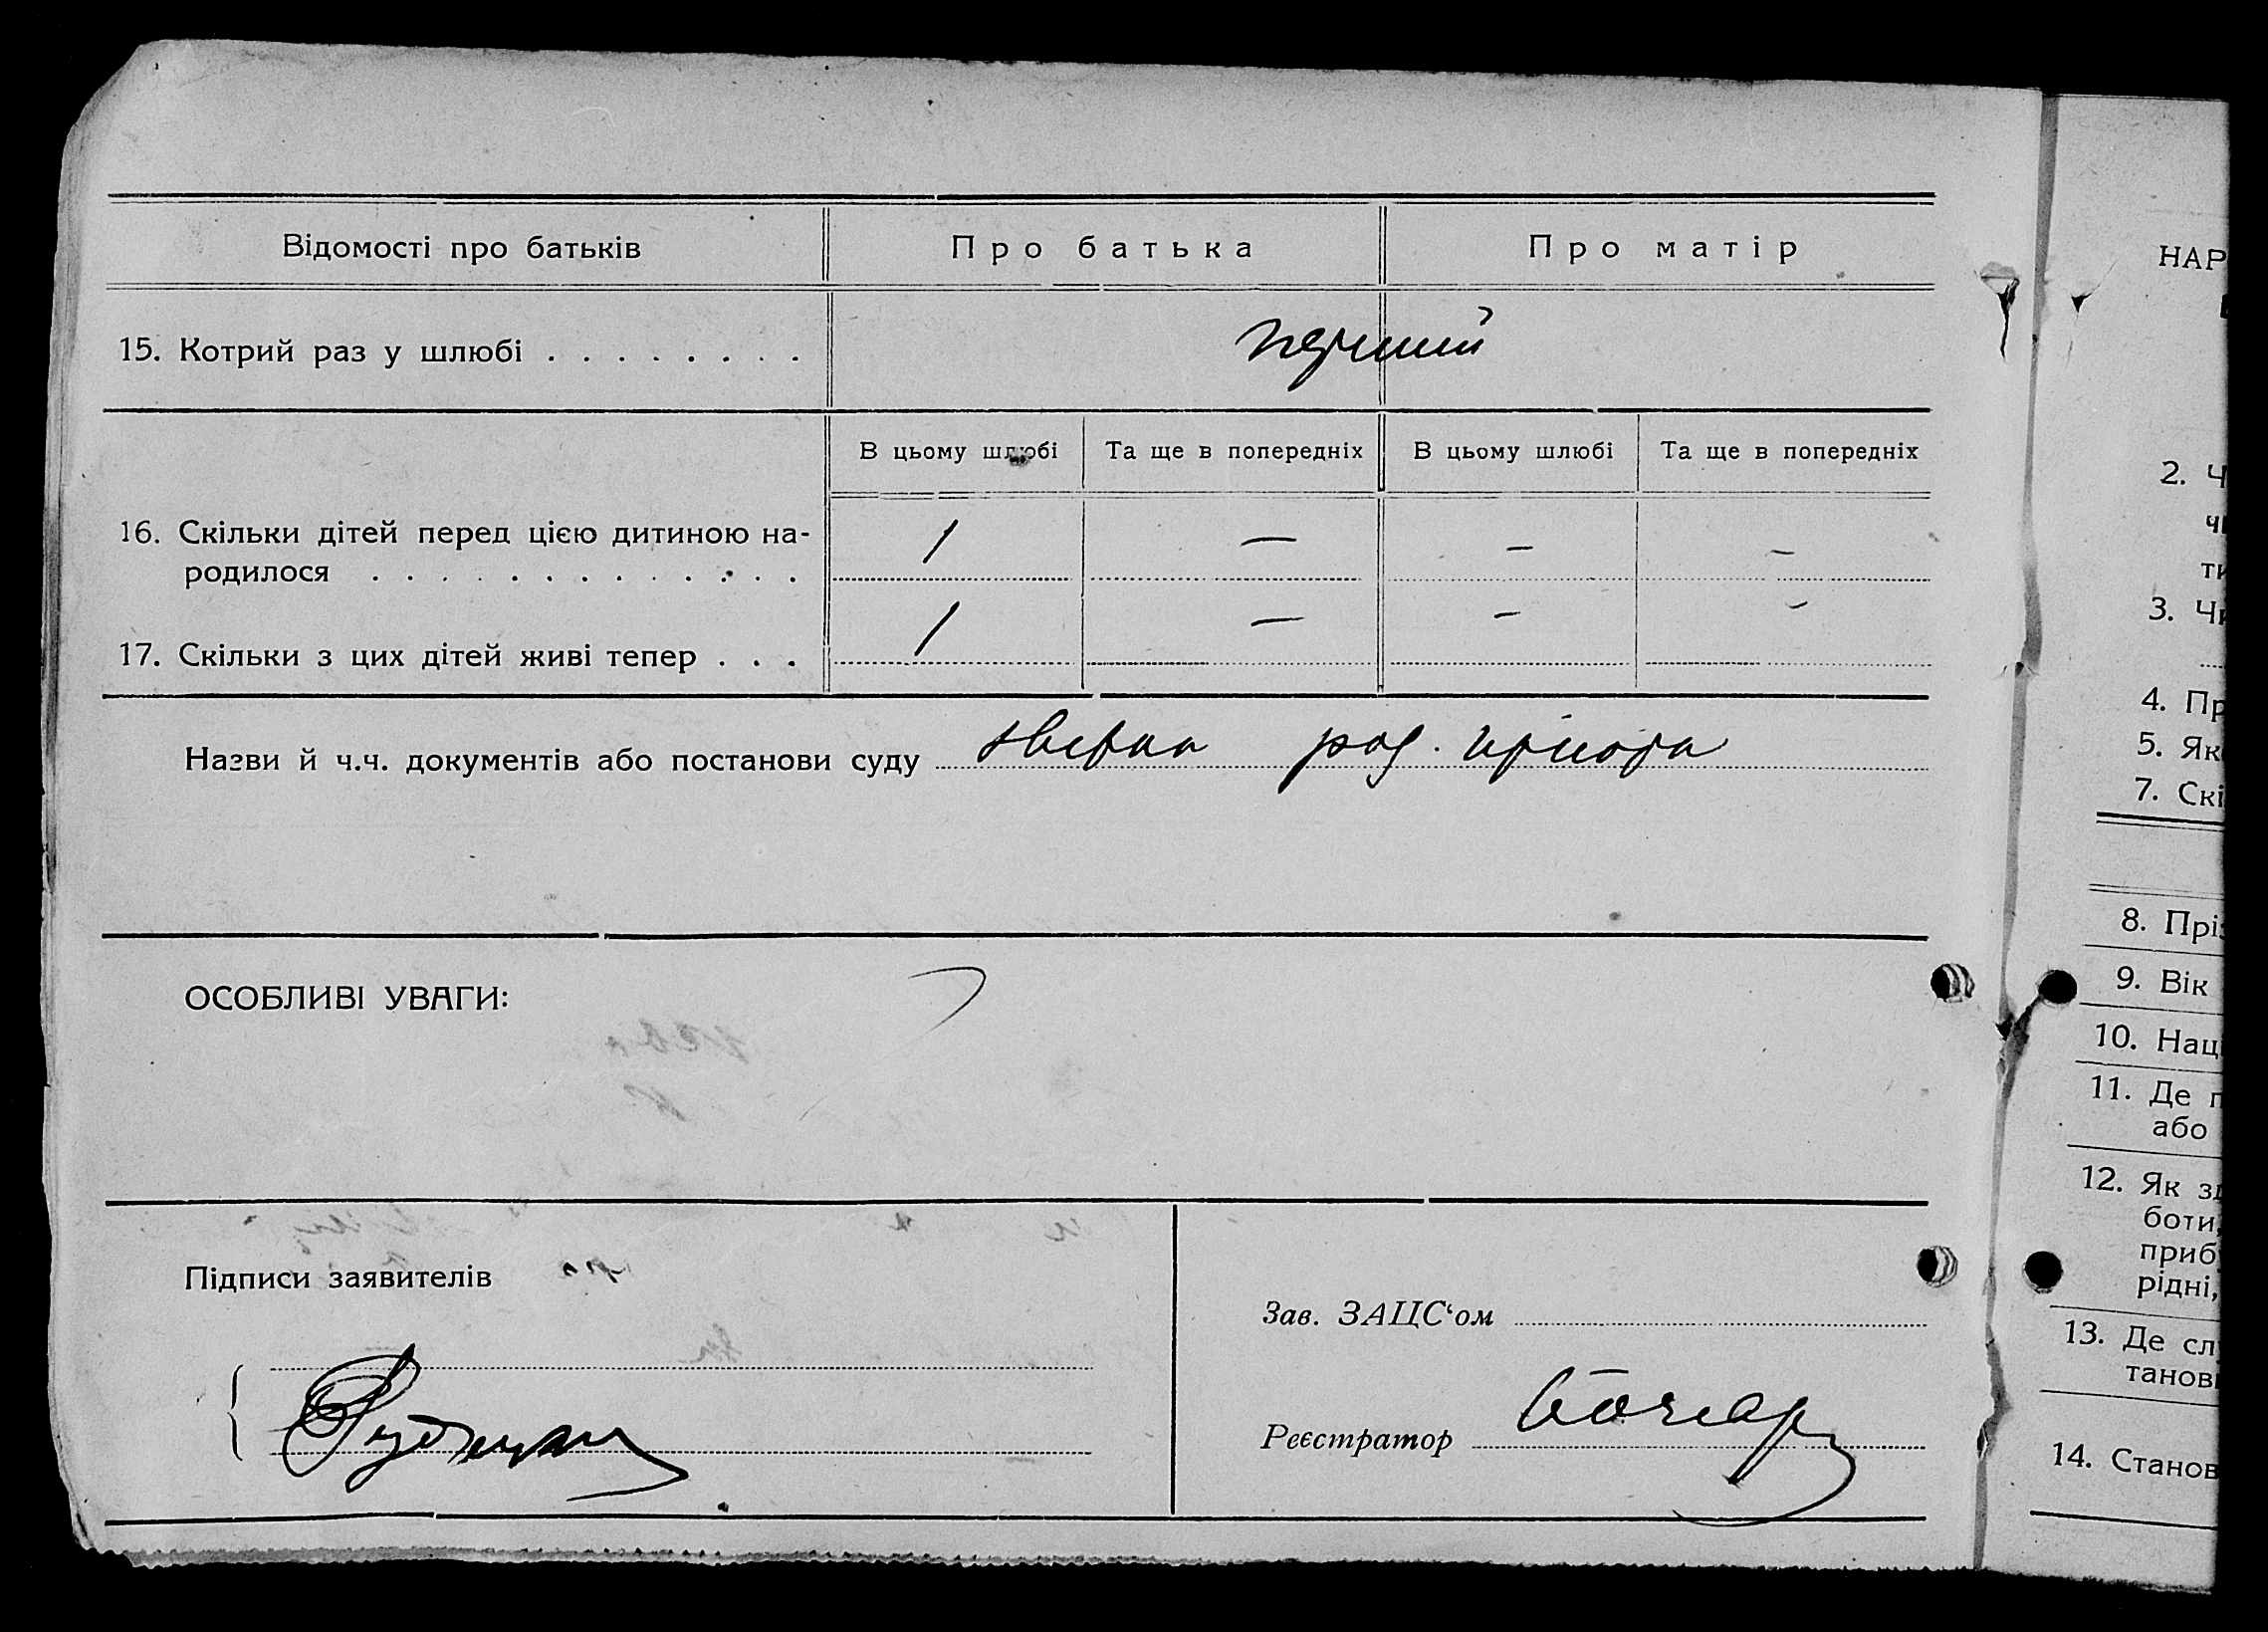 Відомості про батьків Про батька Про матір
15. Котрий раз у шлюбі . . . . . . . . перший
В цьому шлюбі Та ще в попередніх В цьому шлюбі Та ще в попередніх
16. Скільки дітей перед цією дитиною на-
родилося . . . . . . . . . . . . . 1 — — —
17. Скільки з цих дітей живі тепер . . . 1 — — —
Назви й ч.ч. документів або постанови суду род.
ОСОБЛИВІ УВАГИ:
Підписи заявителів
Зав. ЗАЦС‘ом
Реєстратор Бочар
НАР
2. Ч
чи
ти
3. Чи
4. Пр
5. Як
7. Скі
8. Пріз
9. Вік
10. Наці
11. Де п
або
12. Як зд
боти,
приб
рідні,
13. Де сл
танов
14. Станов